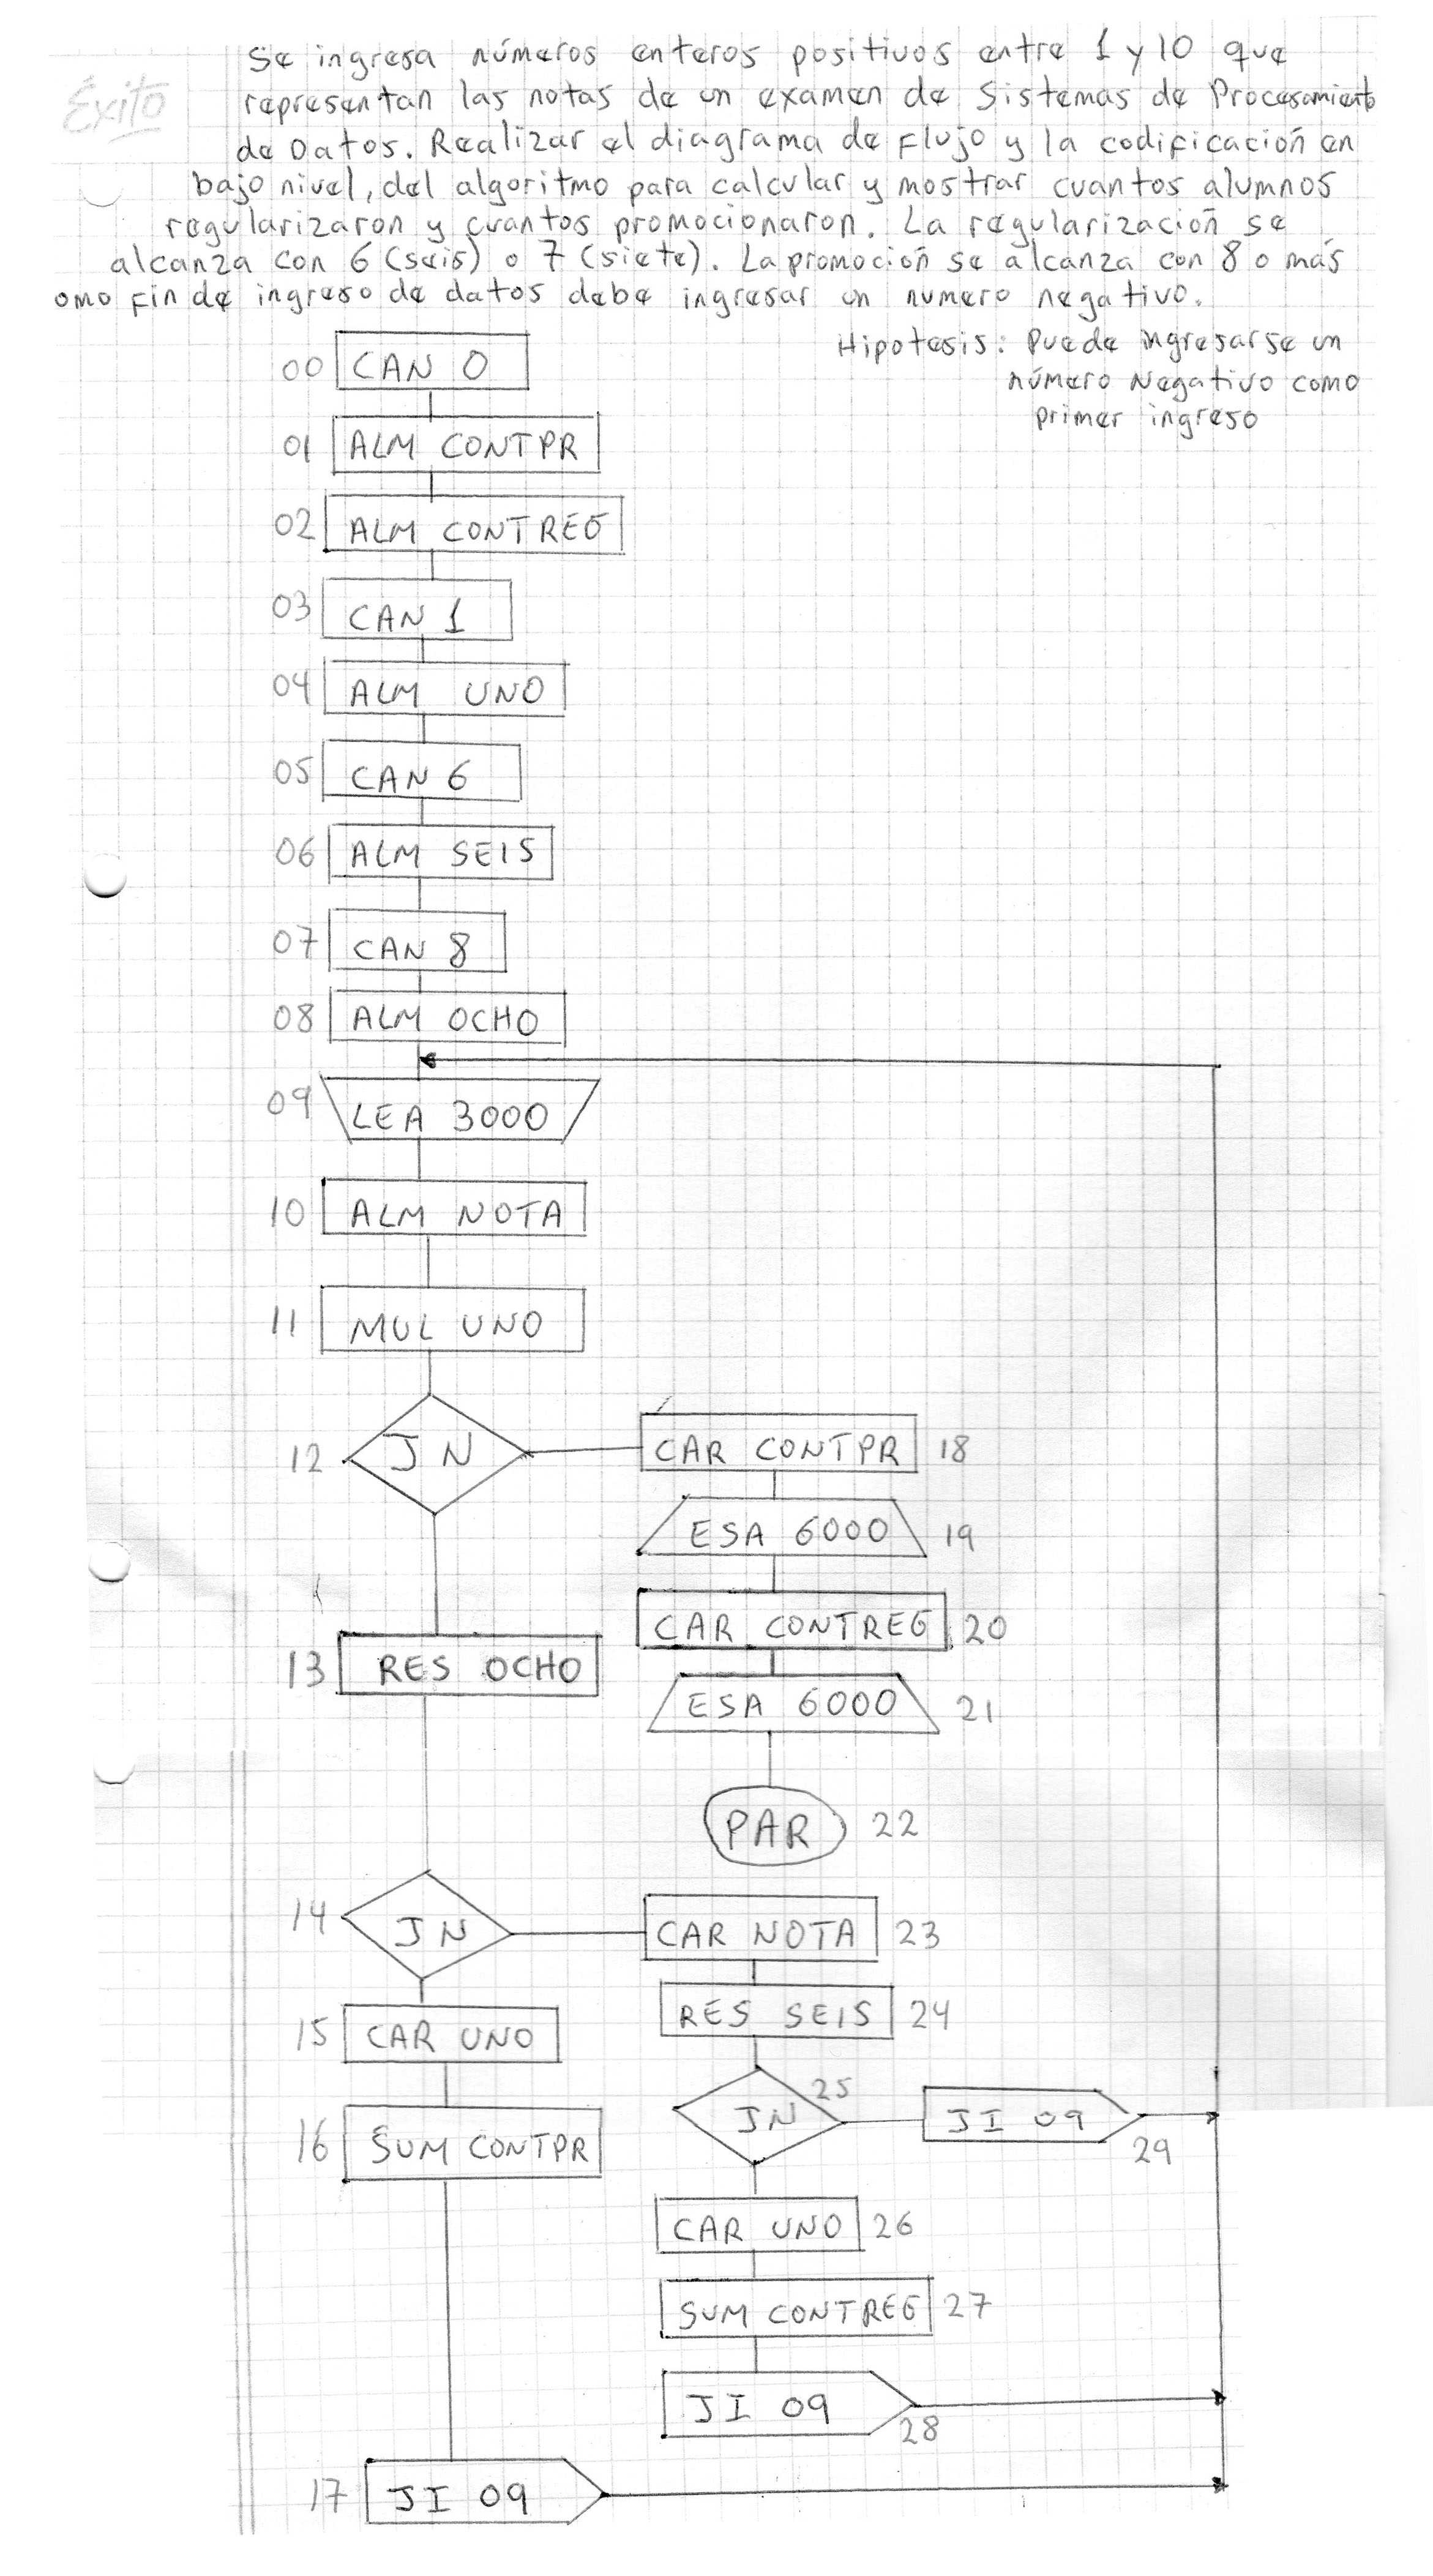 Éxito
Se ingresa números enteros positivos entre 1 y 10 que
representan las notas de un examen de Sistemas de Procesamiento
de Datos. Realizar el diagrama de Flujo y la codificación en
bajo nivel, del algoritmo para calcular y mostrar cuantos alumnos
regularizaron y cuantos promocionaron. La regularización se
alcanza con 6 (seis) o 7 (siete). La promoción se alcanza con 8 o más
omo fin de ingreso de datos debe ingresar un numero negativo.
Hipotesis: Puede ingresarse un
número Negativo como
primer ingreso
00 CAN 0
01 ALM CONTPR
02 ALM CONTREG
03 CAN 1
04 ALM UNO
05 CAN 6
06 ALM SEIS
07 CAN 8
08 ALM OCHO
09 LEA 3000
10 ALM NOTA
11 MUL UNO
12 JN
CAR CONTPR 18
ESA 6000 19
CAR CONTREG 20
13 RES OCHO
ESA 6000 21
PAR 22
14 JN
CAR NOTA 23
RES SEIS 24
15 CAR UNO
JN 25
JI 09 29
16 SUM CONTPR
CAR UNO 26
SUM CONTREG 27
JI 09 28
17 JI 09